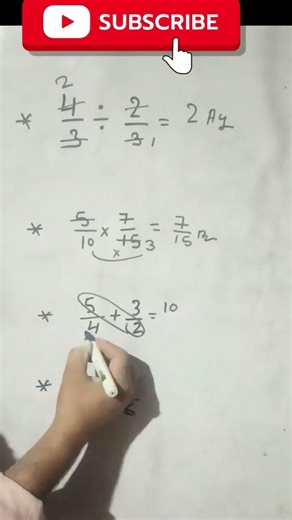 SUBSCRIBE
2
* 4/3 ÷ 2/3 1 = 2 Ay
* 5/10 × 7/15 3 = 7/15
×
* 5/4 + 3/12 = 10
*
6